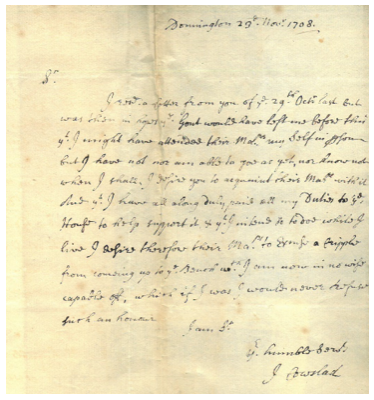 Donnington 29th. Novr. 1708.
Sr.
I recd. a letter from you of ye. 29th. Octr. last but
was then in hopes ye. Gout would have left me before this
yt. I might have attended their Mars.
but I have not nor am able to goe as yet, nor know not
when I shall. I desire you to acquaint their Mars. with it
And yt. I have all along duly paid all my Duties to ye.
House to help support it & yt. I intend to doe while I
live I desire therefore their Mars. to Excuse a Cripple
from comeing up to ye. Bench wch. I am now in no wise
capable off, which if I was I would never refuse
such an honour
I am Sr.
yr. humble Servt.
J